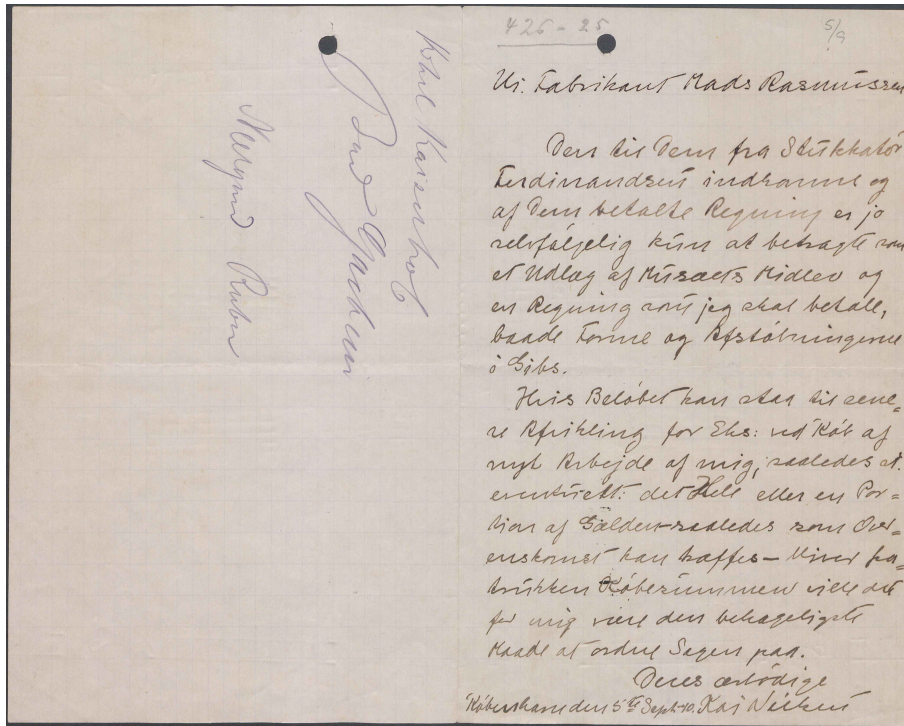 426 - 25
5/9
Hr. Fabrikant Mads Rasmussen
Den til Dem fra Stukkatør
Ferdinandsen indkomne og
af Dem betalte Regning er jo
selvfølgelig kun at betragte som
et Udlæg af Musæets Midler og
en Regning som jeg skal betale,
baade Forme og Afstøbningerne
i Gibs.
Hvis Beløbet kan staa til sene=
re Afvikling for Eks: ved Køb af
nyt Arbejde af mig, saaledes at
eventuelt: det Hele eller en Por=
tion af Gælden – saaledes som Over=
enskomst kan træffes – bliver fra=
trukken Købesummen vilde det
for mig være den behageligste
Maade at ordne Sagen paa.
Deres ærbødige
København den 5te Sept-10. Kai Nielsen
Karl Kaiserhof
Bad